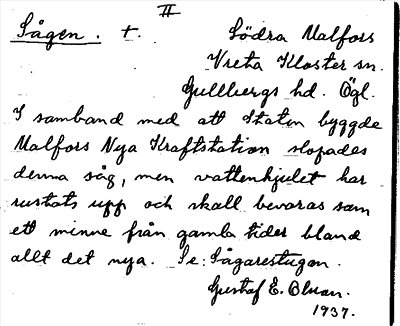 II
Sågen. t. Södra Malfors
Vreta Kloster sn.
Gullbergs hd. Ögl.
I samband med att Staten byggde
Malfors Nya Kraftstation slopades
denna såg, men vattenhjulet har
rustats upp och skall bevaras som
ett minne från gamla tider bland
allt det nya. Se: Sågarestugan.
Gustaf E. Olsson.
1937.